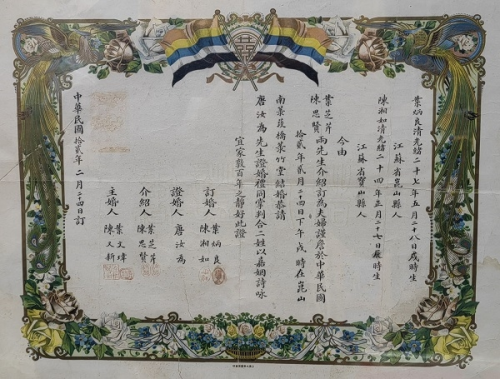 葉炳良清光緒二十七年五月二十八日戌時生
江蘇省崑山縣人
陳湘如清光緒二十四年五月二十七日辰時生
江蘇省寶山縣人
今由
葉芝芹
陳思賢兩先生介紹訂為夫婦謹詹於中華民國
拾貳年貳月二十四日下午戌時在崑山
南葉葭橋菉竹堂結婚恭請
唐汝為先生證婚禮同掌判合二姓以嘉姻詩詠
宜家敦百年之靜好此證
訂婚人葉炳良
陳湘如
證婚人唐汝為
介紹人葉芝芹
陳思賢
主婚人葉文
陳又新
中華民國拾貳年二月二十四日訂